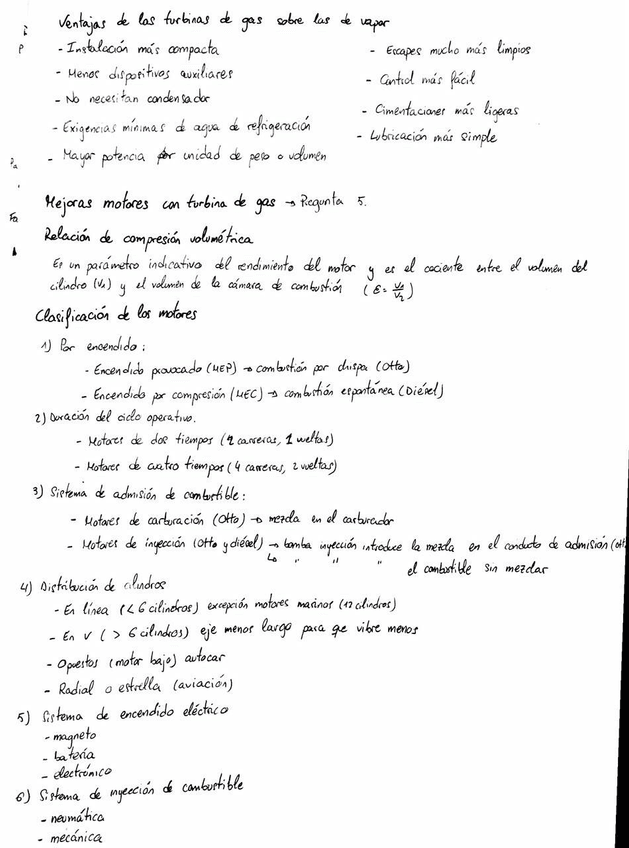 Ventajas de las turbinas de gas sobre las de vapor
- Instalación más compacta
- Menos dispositivos auxiliares
- No necesitan condensador
- Exigencias mínimas de agua de refrigeración
- Mayor potencia por unidad de peso o volumen
- Escapes mucho más limpios
- Control más fácil
- Cimentaciones más ligeras
- Lubricación más simple
Mejoras motores con turbina de gas → Pregunta 5.
Relación de compresión volumétrica
Es un parámetro indicativo del rendimiento del motor y es el cociente entre el volumen del
cilindro (V₁) y el volumen de la cámara de combustión (ε = V₁/V₂)
Clasificación de los motores
1) Por encendido:
- Encendido provocado (MEP) → combustión por chispa (Otto)
- Encendido por compresión (MEC) → combustión espontánea (Diésel)
2) Duración del ciclo operativo.
- Motores de dos tiempos (2 carreras, 1 vueltas)
- Motores de cuatro tiempos (4 carreras, 2 vueltas)
3) Sistema de admisión de combustible:
- Motores de carburación (Otto) → mezcla en el carburador
- Motores de inyección (Otto y diésel) → bomba inyección introduce la mezcla en el conducto de admisión (ott
↳ " " " el combustible sin mezclar
4) Distribución de cilindros
- En línea (< 6 cilindros) excepción motores marinos (12 cilindros)
- En V (> 6 cilindros) eje menos largo para qe vibre menos
- Opuestos (motor bajo) autocar
- Radial o estrella (aviación)
5) Sistema de encendido eléctrico
- magneto
- batería
- electrónico
6) Sistema de inyección de combustible
- neumática
- mecánica